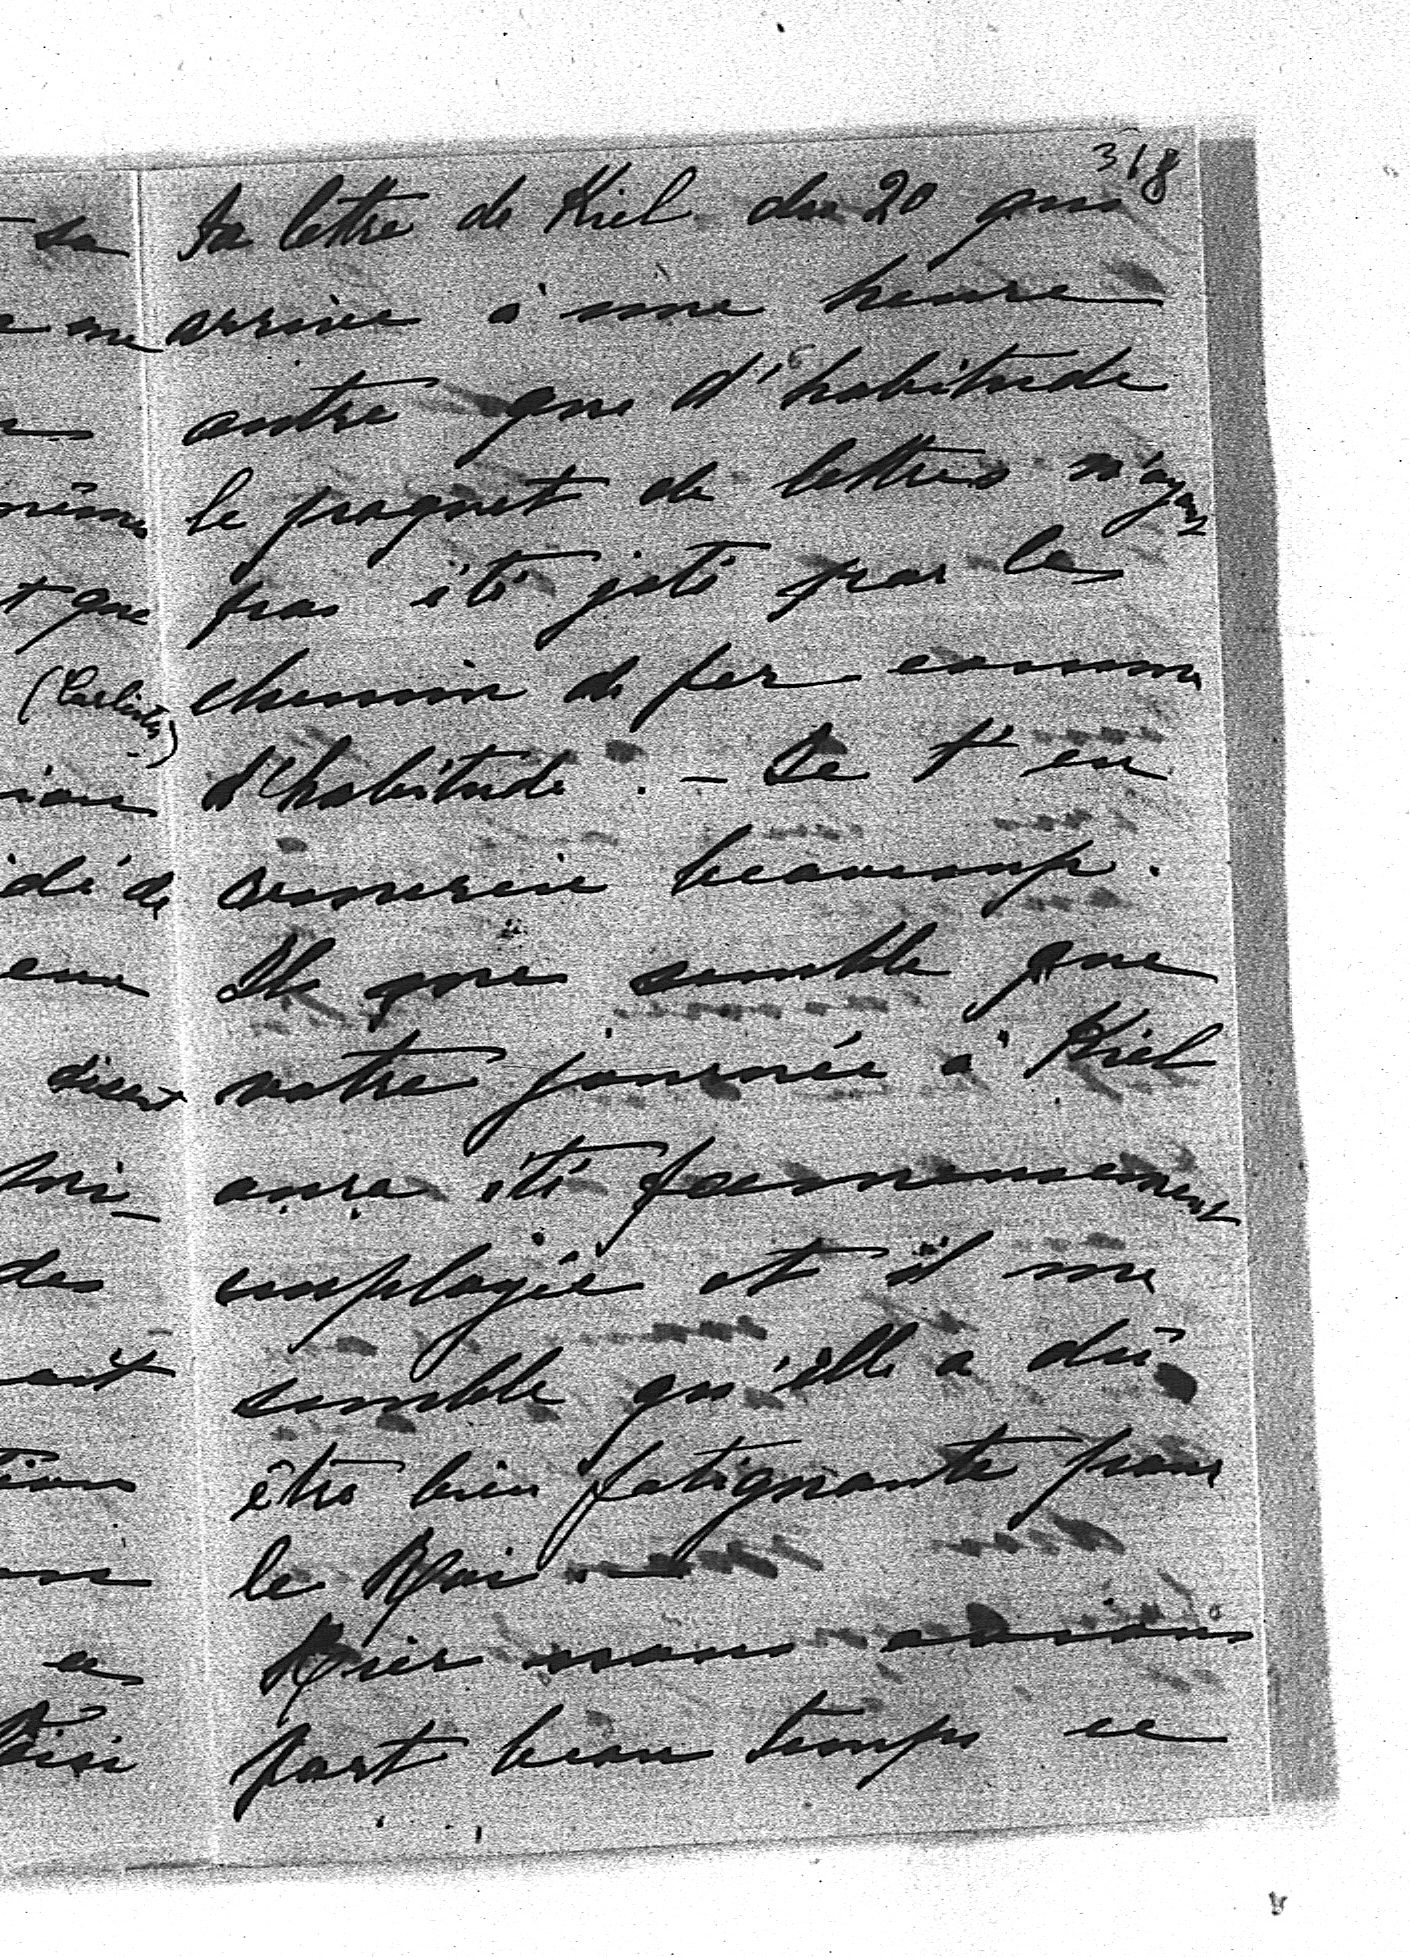 318
ta lettre de Kiel du 20 qui
arrive à une heure
autre que d'habitude
le paquet de lettres n'ayant
pas été jeté par le
chemin de fer comme
d'habitude. - Je t'en
remercie beaucoup.
Il me semble que
votre journée à Kiel
aura été fameusement
employée et il me
semble qu'elle a dû
être bien fatigante pour
le Roi.
Hier nous avions
fort beau temps ce
sa
me
même
que
(Carlista)
dé de
disent
des
ait